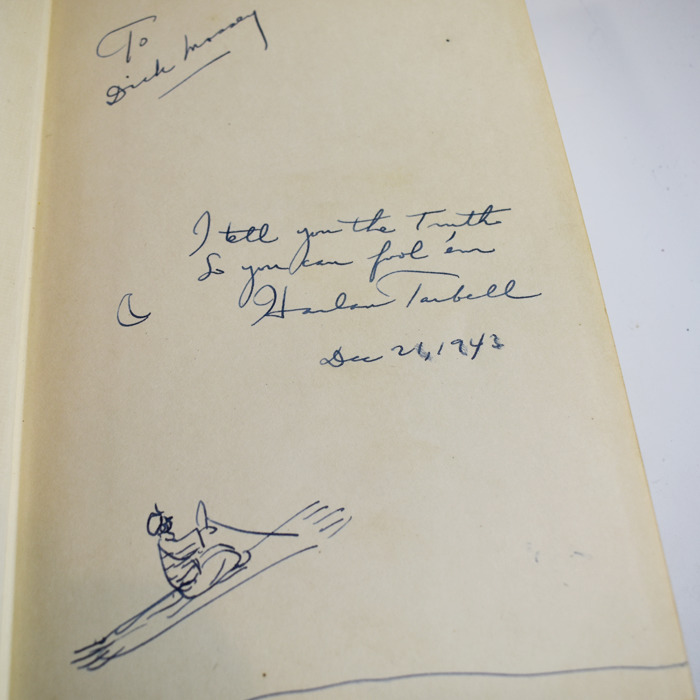 To
Dick Mossey
I tell you the Truth
So you can fool 'em
Harlan Tarbell
Dec 21, 1943